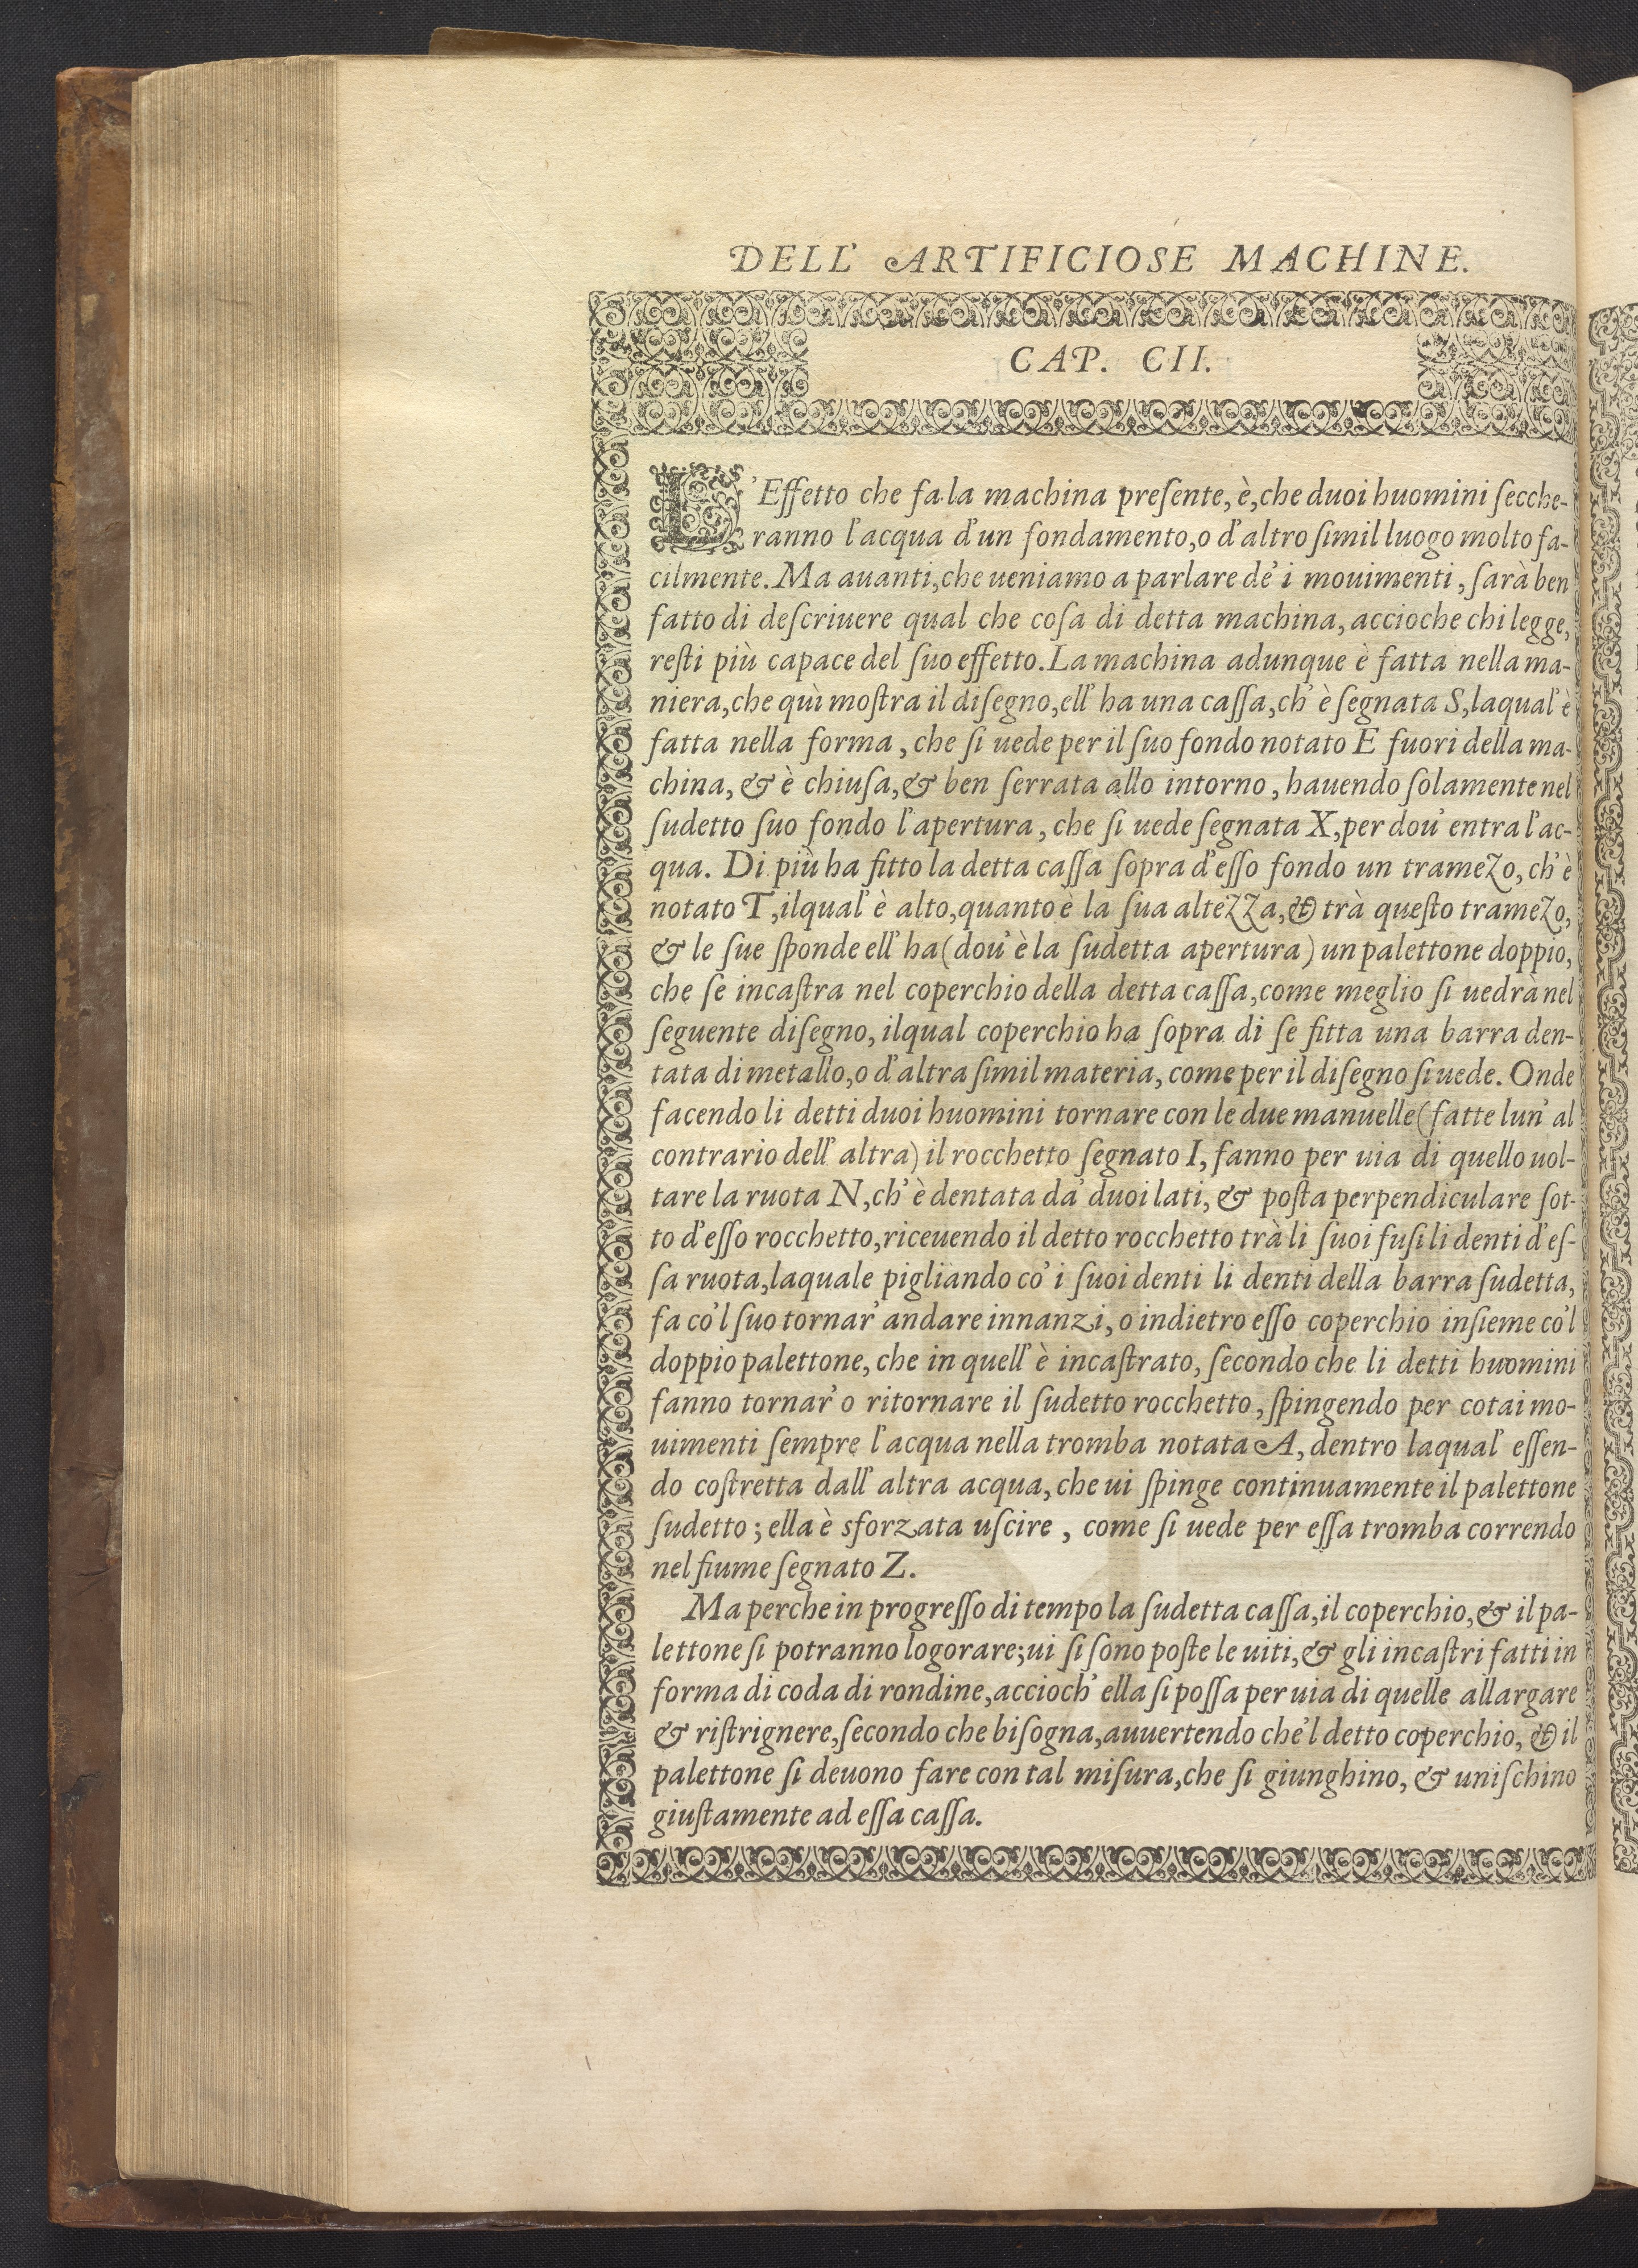 DELL' ARTIFICIOSE MACHINE.
CAP. CII.
L'Effetto che fa la machina preſente, è, che duoi huomini ſecche-
ranno l'acqua d'un fondamento, o d'altro ſimil luogo molto fa-
cilmente. Ma auanti, che ueniamo a parlare de' i mouimenti, ſarà ben
fatto di deſcriuere qual che coſa di detta machina, accioche chi legge,
reſti più capace del ſuo effetto. La machina adunque è fatta nella ma-
niera, che quì moſtra il diſegno, ell' ha una caſſa, ch' è ſegnata S, laqual' è
fatta nella forma, che ſi uede per il ſuo fondo notato E fuori della ma-
china, & è chiuſa, & ben ſerrata allo intorno, hauendo ſolamente nel
ſudetto ſuo fondo l'apertura, che ſi uede ſegnata X, per dou' entra l'ac-
qua. Di più ha fitto la detta caſſa ſopra d'eſſo fondo un tramezo, ch' è
notato T, ilqual' è alto, quanto è la ſua altezza, & trà queſto tramezo,
& le ſue ſponde ell' ha (dou' è la ſudetta apertura) un palettone doppio,
che ſe incaſtra nel coperchio della detta caſſa, come meglio ſi uedrà nel
ſeguente diſegno, ilqual coperchio ha ſopra di ſe fitta una barra den-
tata di metallo, o d'altra ſimil materia, come per il diſegno ſi uede. Onde
facendo li detti duoi huomini tornare con le due manuelle (fatte lun' al
contrario dell' altra) il rocchetto ſegnato I, fanno per uia di quello uol-
tare la ruota N, ch' è dentata da' duoi lati, & poſta perpendiculare ſot-
to d'eſſo rocchetto, riceuendo il detto rocchetto trà li ſuoi fuſi li denti d'eſ-
ſa ruota, laquale pigliando co' i ſuoi denti li denti della barra ſudetta,
fa co'l ſuo tornar' andare innanzi, o indietro eſſo coperchio inſieme co'l
doppio palettone, che in quell' è incaſtrato, ſecondo che li detti huomini
fanno tornar' o ritornare il ſudetto rocchetto, ſpingendo per cotai mo-
uimenti ſempre l'acqua nella tromba notata A, dentro laqual' eſſen-
do coſtretta dall' altra acqua, che ui ſpinge continuamente il palettone
ſudetto; ella è sforzata uſcire, come ſi uede per eſſa tromba correndo
nel fiume ſegnato Z.
Ma perche in progreſſo di tempo la ſudetta caſſa, il coperchio, & il pa-
lettone ſi potranno logorare; ui ſi ſono poſte le uiti, & gli incaſtri fatti in
forma di coda di rondine, accioch' ella ſi poſſa per uia di quelle allargare
& riſtrignere, ſecondo che biſogna, auuertendo che'l detto coperchio, & il
palettone ſi deuono fare con tal miſura, che ſi giunghino, & uniſchino
giuſtamente ad eſſa caſſa.